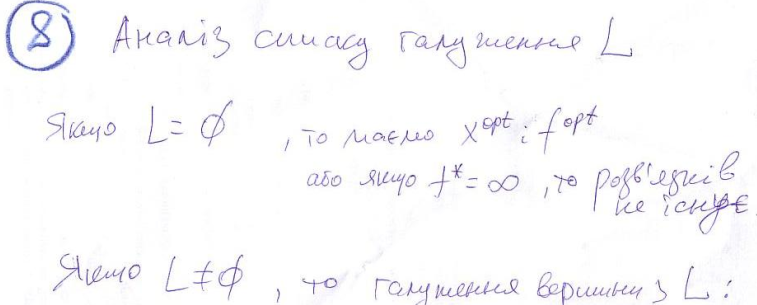 8 Аналіз списку галуження L
Якщо L = ∅ , то маємо x^opt і f^opt
або якщо f* = ∞ , то розв'язків
не існує.
Якщо L ≠ ∅ , то галуження вершини з L :